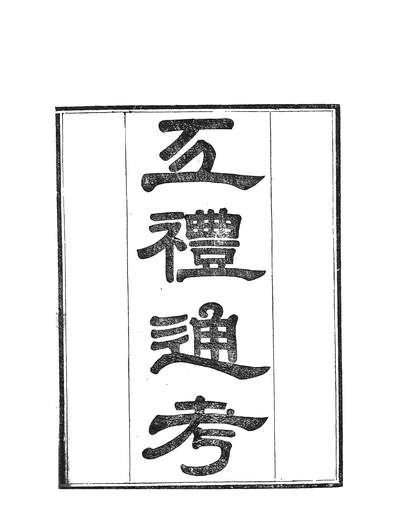 五禮通考